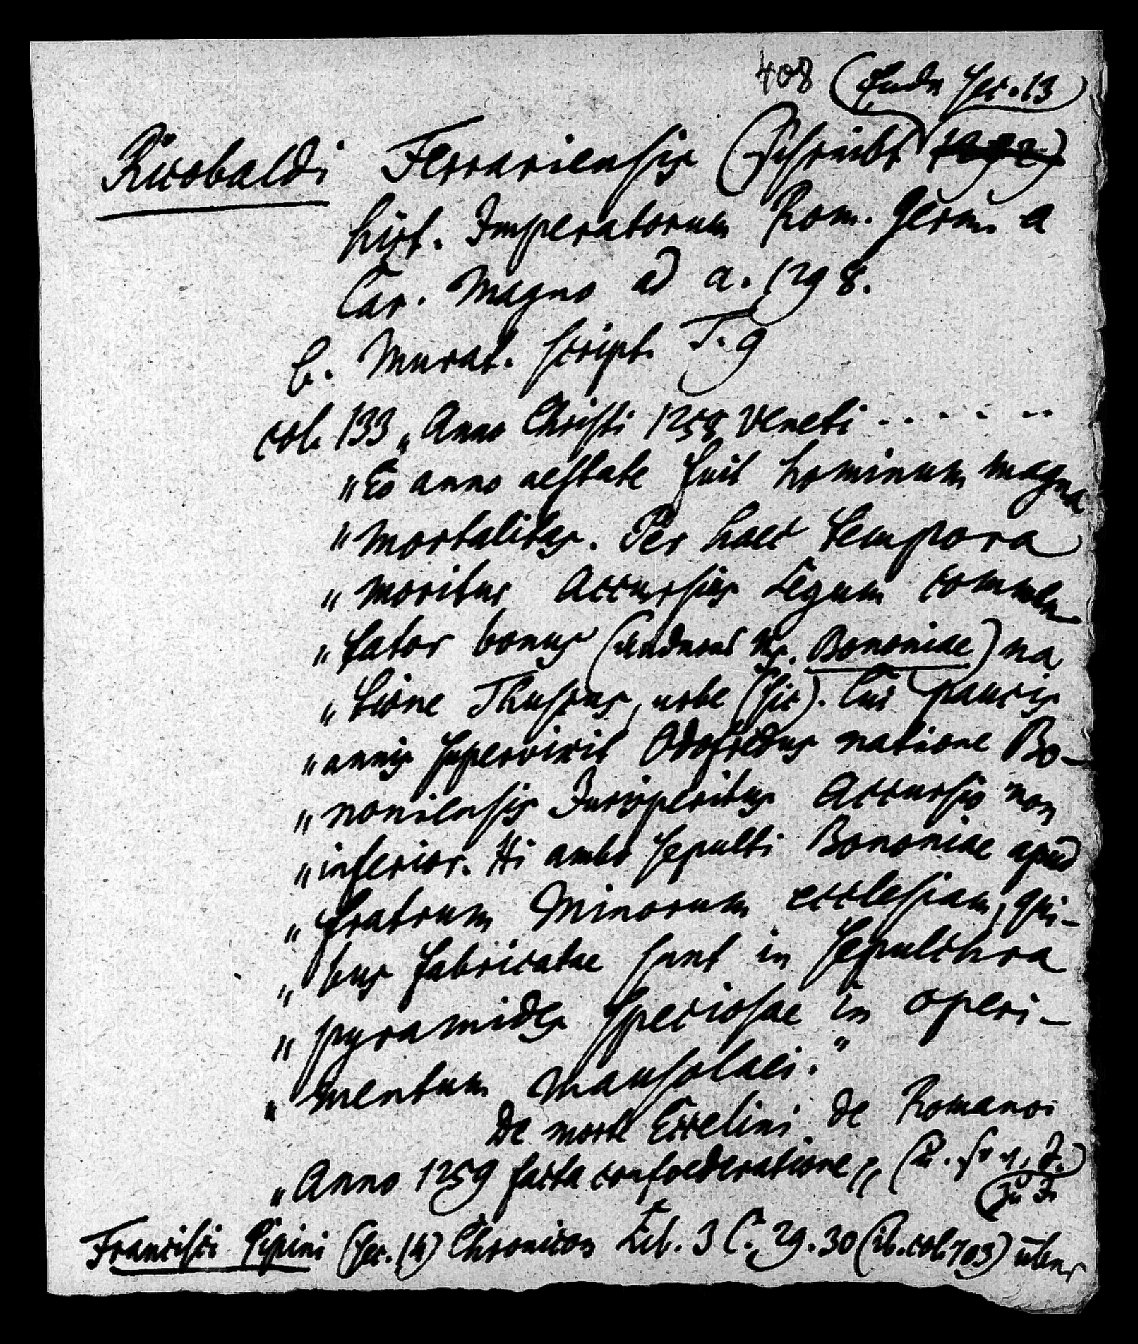 408 (Ende Sec. 13)
Ricobaldi Ferrariensis (schreibt
hist. Imperatorum Rom. Germ. a
Car. Magno ad a. 1298.
b. Murat. script. T. 9
col. 133 „Anno Christi 1258 Veneti . . . . . .
„Eo anno aestate fuit hominum magna
„mortalitas. Per haec tempora
„moritur Accursius Legum commen-
„tator bonus (Bononiae) na
„tione Thuscus, urbe (sic). Cui paucis
„annis supervixit Odofredus natione Bo-
„noniensis Jurisperitus Accursio non
„inferior. Hi ambo sepulti Bononiae apud
„fratrum Minorum ecclesiam, qui-
„bus fabricatae sunt in sepulchra
„pyramides speciosae in operi-
„mentum Mausolaei.“
De morte Eccelini de Romano:
„Anno 1259 facta confoederatione„
Francisci Pipini (Sec. 14) Chronicon Lib. 3 C. 29. 30 (ib. col. 703) über